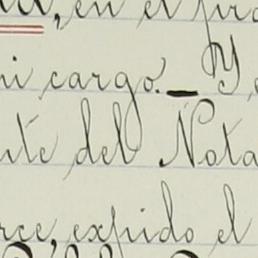 , en el pro
mi cargo. — Y
nte del Nota
rce, expido el